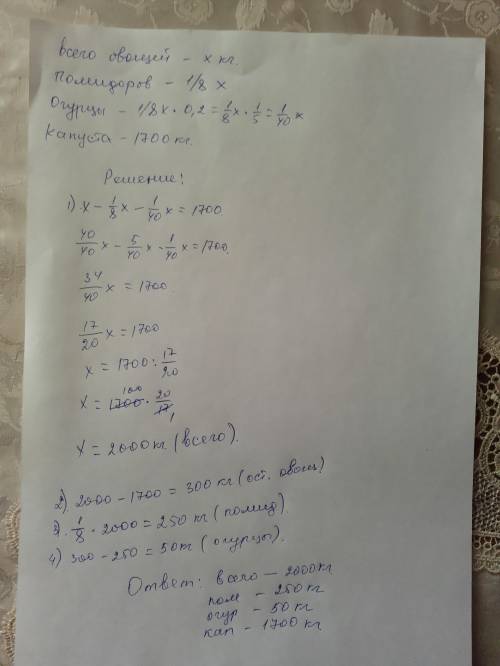 Всего овощей - х кг.
Помидоров - 1/8 х
Огурцы - 1/8х · 0,2 = 1/8 х · 1/5 = 1/40 х
Капуста - 1700 кг.
Решение:
1). х - 1/8 х - 1/40 х = 1700.
40/40 х - 5/40 х - 1/40 х = 1700.
34/40 х = 1700.
17/20 х = 1700
х = 1700 : 17/20
х = 1700 100 · 20/17 1
х = 2000 кг (всего).
2). 2000 - 1700 = 300 кг (ост. овощ)
3). 1/8 · 2000 = 250 кг (помид).
4) 300 - 250 = 50 кг (огурцы).
Ответ: всего — 2000 кг
пом - 250 кг
огур - 50 кг
кап - 1700 кг